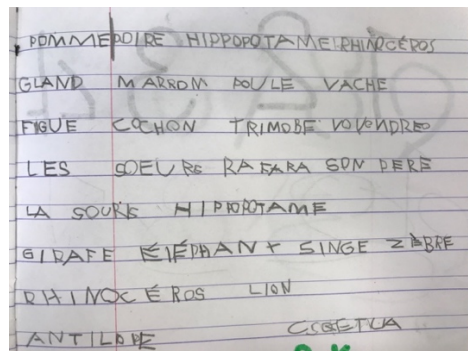 POMME POIRE HIPPOPOTAME RHINOCÉROS
GLAND MARRON POULE VACHE
FIGUE COCHON TRIMOBE
LES SOEURS RAFARA SON PERE
LA SOURIS HIPPOPOTAME
GIRAFE ÉLÉPHANT SINGE ZÈBRE
RHINOCÉROS LION
ANTILOPE